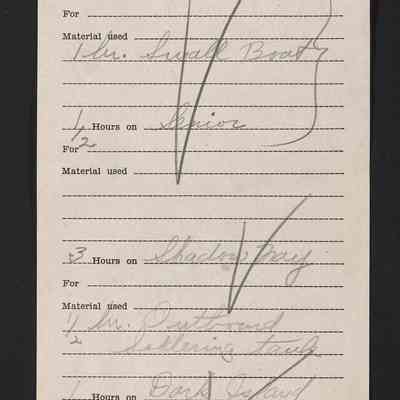 For
Material used
1 hr. Small Boat
1/2 Hours on Senior
For
Material used
3 Hours on Shadow Way
For
Material used
1/2 hr. Outboard
Soldering tank
1 Hours on Dark Island